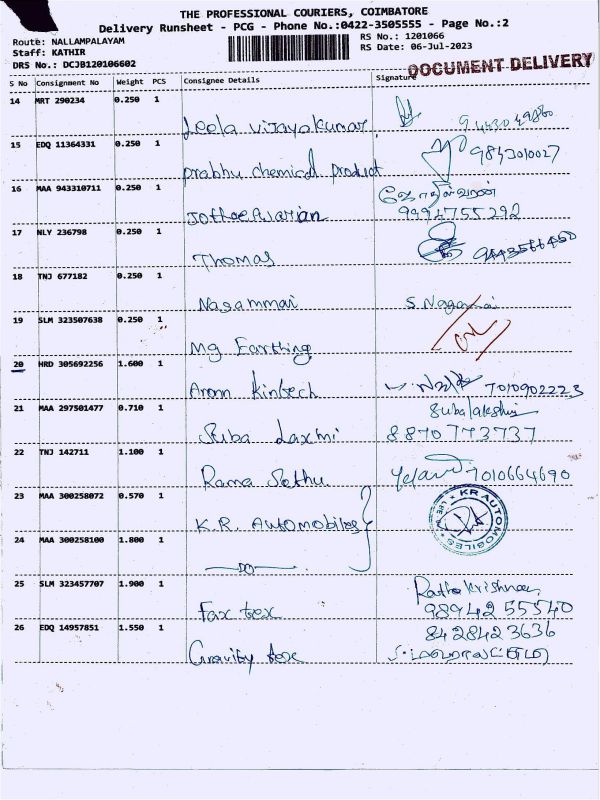 THE PROFESSIONAL COURIERS, COIMBATORE
Delivery Runsheet - PCG - Phone No.:0422-3505555 - Page No.:2
Route: NALLAMPALAYAM
RS No.: 1201066
Staff: KATHIR
RS Date: 06-Jul-2023
DRS No.: DCJB120106602
DOCUMENT DELIVERY
S No Consignment No Weight PCS Consignee Details Signature
14 MRT 290234 0.250 1
Leela Vijayakumar
15 EDQ 11364331 0.250 1
prabhu chemical product 9843010027
16 MAA 943310711 0.250 1
9994755292
17 NLY 236798 0.250 1
Thomas
18 TNJ 677182 0.250 1
Nagammai S. Nagammai
19 SLM 323507638 0.250 1
Mg Farthing
20 HRD 305692256 1.600 1
Kintech 7010902223
21 MAA 297501477 0.710 1
Subalakshmi
Suba Laxmi 8870773737
22 TNJ 142711 1.100 1
Rama Sethu 7010664690
23 MAA 300258072 0.570 1
K.R. Automobiles
KR AUTOMOBILES
24 MAA 300258100 1.800 1
DO
25 SLM 323457707 1.900 1
Rathakrishnan
Fax tex 98942 55540
26 EDQ 14957851 1.550 1
8428423636
Gravity tex